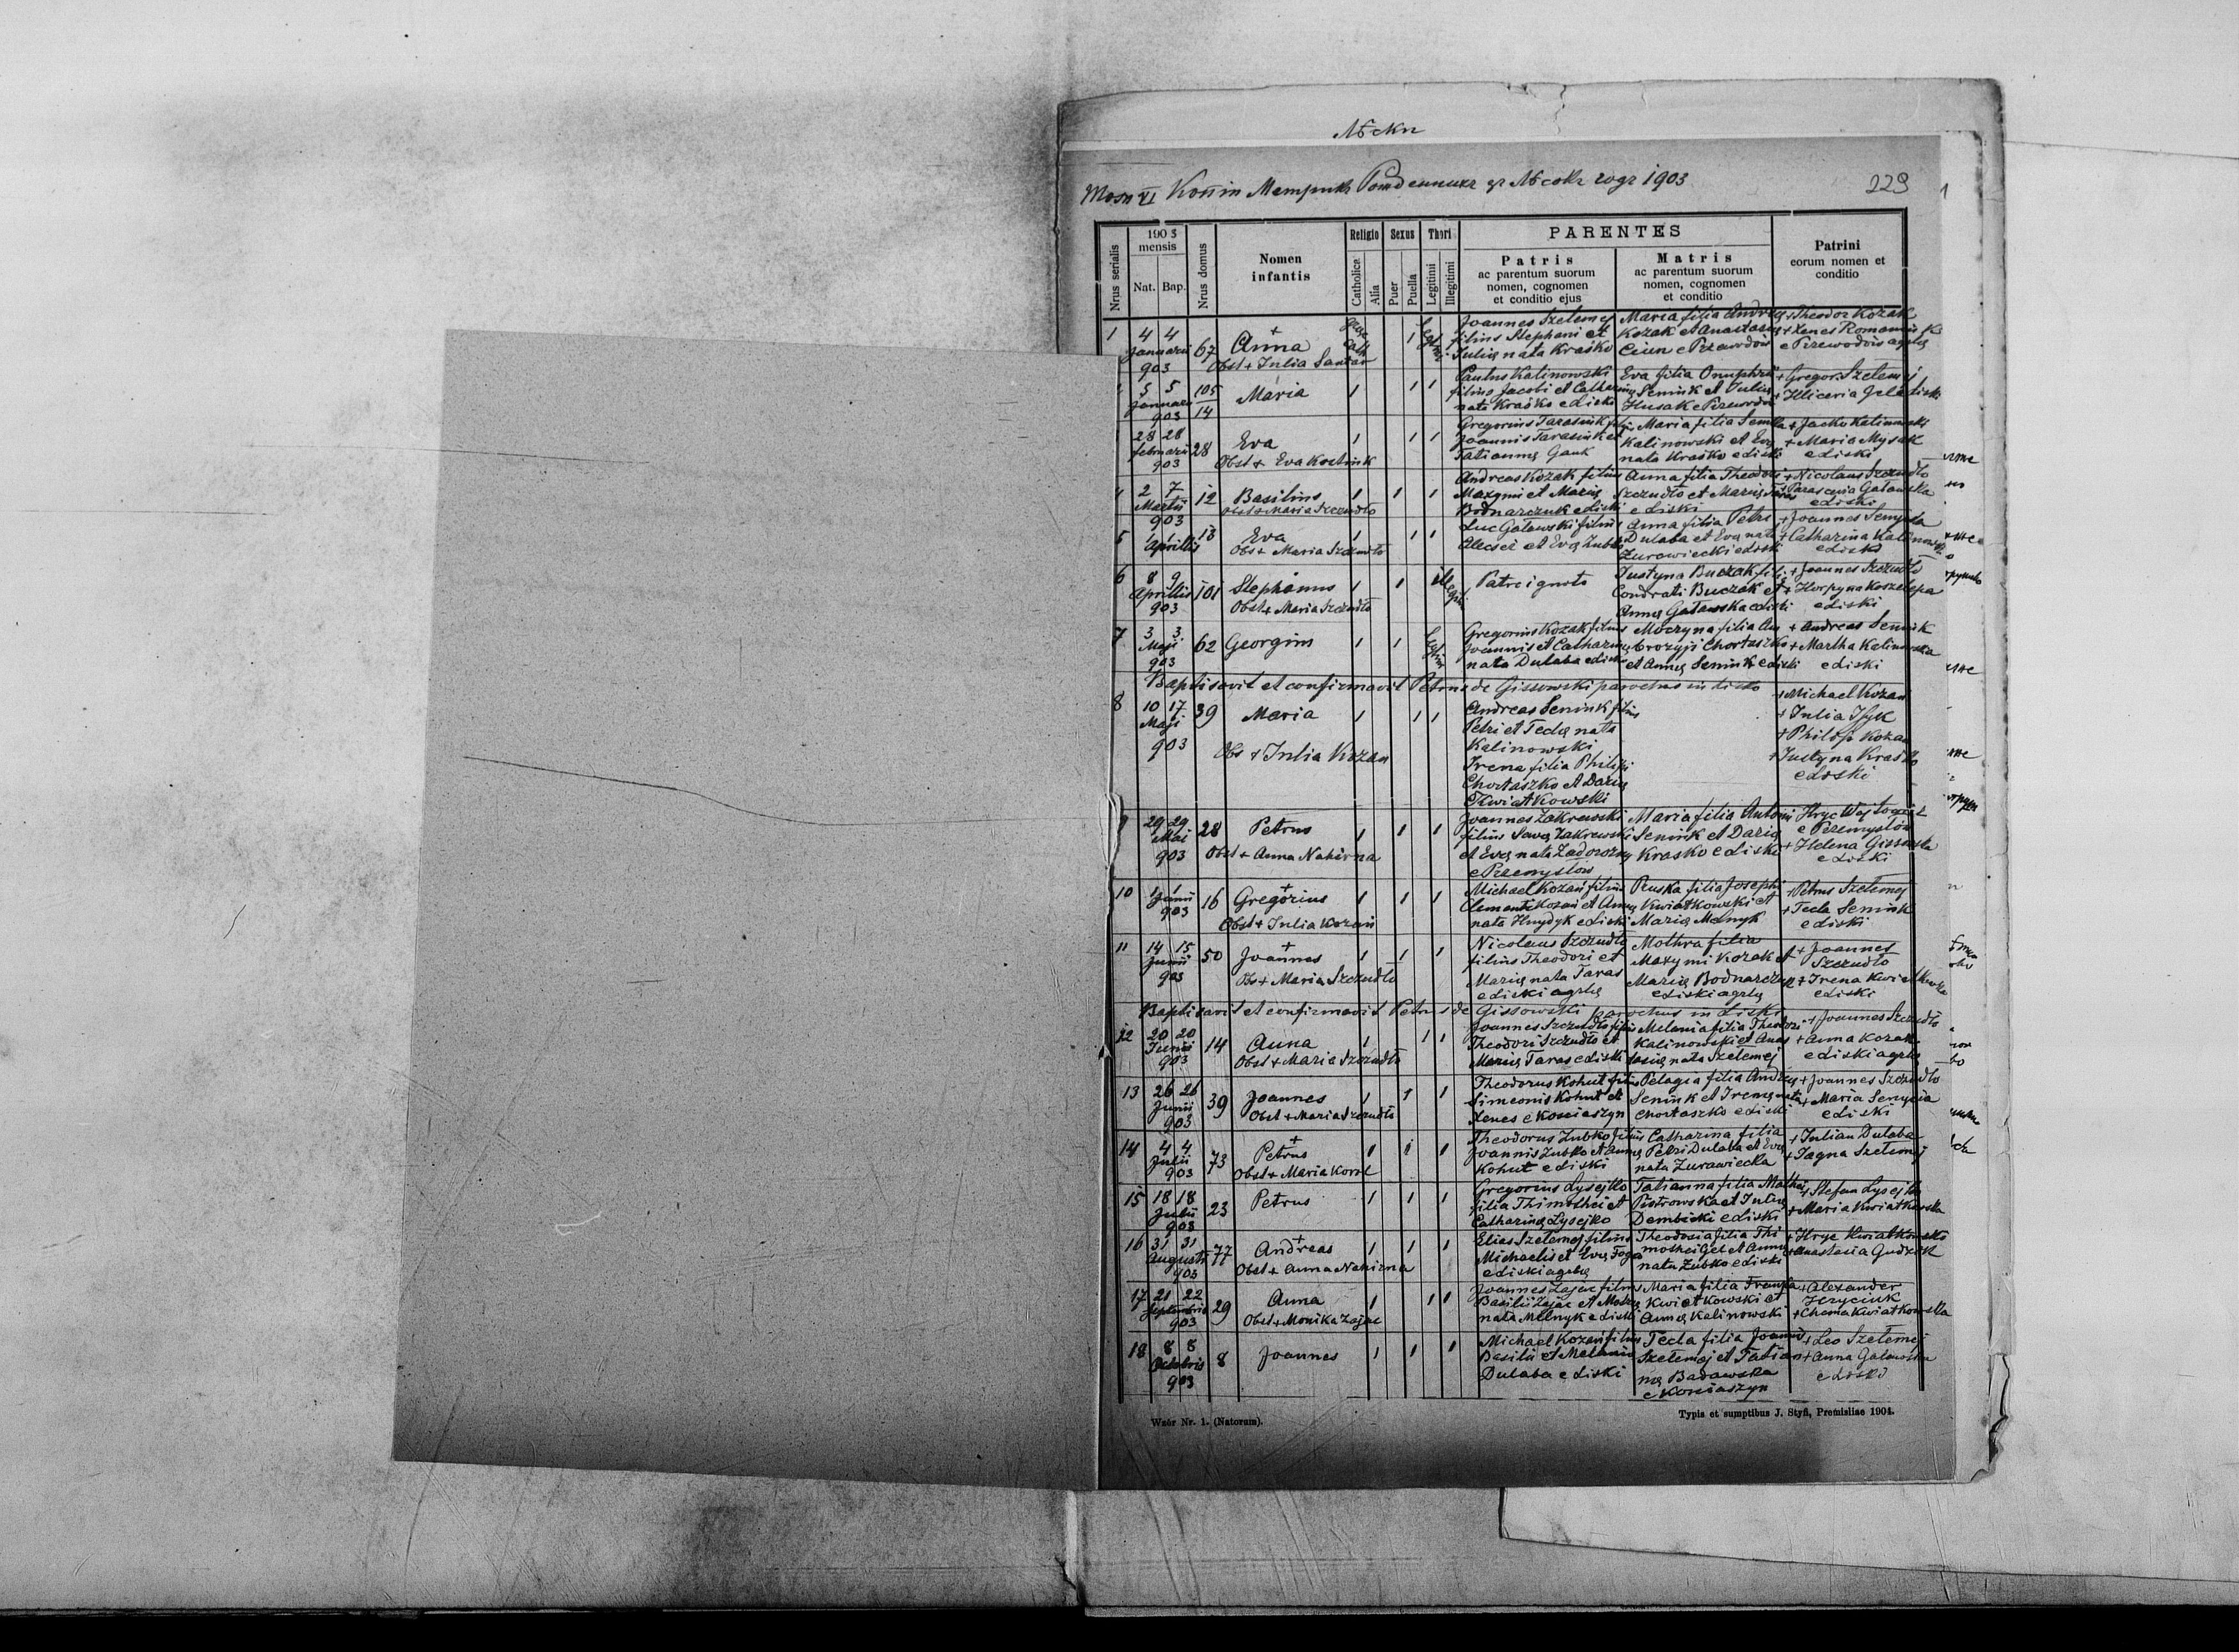 Лѣски
Томъ VI Копіи Метрикъ Рожденныхъ зъ Лѣсокъ годъ 1903
229
Nrus serialis
1903
mensis
Nat. Bap.
Nrus domus
Nomen
infantis
Religio
Catholica
Alia
Sexus
Puer
Puella
Thori
Legitimi
Illegitimi
PARENTES
Patris
ac parentum suorum
nomen, cognomen
et conditio ejus
Matris
ac parentum suorum
nomen, cognomen
et conditio
Patrini
eorum nomen et
conditio
1
4 4
Januarii
903
67
Anna
Obst + Julia
Joannes Szelemej
filius Stephani et
Julię nata Kraśko
Maria filia Andreę
Kozak et Anastasię
+ Theodor Kozak
+ Xenes
e Przewodów agrlę
5 5
Januarii
903
105
14
Maria
1
1 1
Paulus Kalinowski
filius Jacobi et Catharinę
nata Kraśko e Liski
Eva filia Onuphrii
Seniuk et Julię
Husak e Przewodów
+ Gregor. Szelemej
28 28
februarii
903
28
Eva
Obst + Eva Kostiuk
1
1 1
Gregorius Tarasiuk filius
Joannis Tarasiuk et
Tatiannę Gauk
Maria filia
Kalinowski et Evę
nata Kraśko e Liski
+ Jacko Kalinowski
+ Maria Mysak
e Liski
4
2 7
Martii
903
12
Basilius
Obst + Maria Szczudło
1 1 1
Andreas Kozak filius
Maxymi et Marię
Bodnarczuk e Liski
Anna filia Theodori
Szczudło et Marię Taras
e Liski
+ Nicolaus Szczudło
+ Parascevia Gałowska
e Liski
5
1 1
Aprillis
13
Eva
Obs + Maria Szczudło
1
1 1
Luc Gałowski filius
Alecsei et Evę Zubko
Anna filia Petri
Dulaba et Evę nata
Żurawiecki e Liski
+ Joannes Senycia
+ Catharina Kalinowska
e Liski
6
8 9
Aprillis
903
101
Stephanus
Obst + Maria Szczudło
1 1
Patre ignoto
Justyna Buczak filia
Condrati Buczak et
Annę Gałowska e Liski
+ Joannes Szczudło
+ Horpyna
e Liski
7
3 3
Maji
903
62
Georgius
1 1
Gregorius Kozak filius
Joannis et Catharinę
nata Dulaba e Liski
Moczyna filia Am
brozyji Chortaszko
et Annę Seniuk e Liski
+ Andreas Seniuk
+ Martha Kalinowska
e Liski
Baptisavit et confirmavit Petrus de Gissowski parochus in Lisko
8
10 17
Maji
903
39
Maria
Obs + Julia Kozan
1
1 1
Andreas Seniuk filius
Petri et Teclę nata
Kalinowski
Irena filia Philippi
Chortaszko et Darię
Kwiatkowski
+ Michael Kozan
+ Julia
+ Philip Kozan
+ Justyna Kraśko
e Liski
9
29 29
Mai
903
28
Petrus
Obst + Anna Nahirna
1 1 1
Joannes Zakrewski
filius Savę Zakrewski
et Evę nata Zadorożny
e Przemysłów
Maria filia Antoni
Seniuk et Darię
Krasko e Liski
Hryc Wojtowicz
e Przemysłów
+ Helena Gissowska
e Liski
10
1 1
Junii
903
16
Gregorius
Obst + Julia Kozań
1 1 1
Michael Kozań filius
Clementi Kozań et Annę
nata Hnydyk e Liski
Pruska filia Josephi
Kwiatkowski et
Marię Melnyk
+ Petrus Szełemej
+ Tecla Seniuk
e Liski
11
14 15
Junii
903
50
Joannes
Obs + Maria Szczudło
1 1 1
Nicolaus Szczudło
filius Theodori et
Marię nata Taras
e Liski agrlę
Mothra filia
Maxymi Kozak et
Marię Bodnarczuk
e Liski agrlę
+ Joannes
Szczudło
+ Irena Kwiatkowska
e Liski
Baptisavit et confirmavit Petrus de Gissowski parochus in Liski
12
20 20
Junii
903
14
Anna
Obst + Maria Szczudło
1
1 1
Joannes Szczudło filius
Theodori Szczudło et
Marię Taras e Liski
Melania filia Theodori
Kalinowski et Anas
tasię nata Szełemej
+ Joannes Szczudło
+ Anna Kozak
e Liski agrlę
13
26 26
Junii
903
39
Joannes
Obst + Maria Szczudło
1 1 1
Theodorus Kohut filius
Simeonis Kohut et
Xenes e Kościaszyn
Pelagia filia Andreę
Seniuk et Irenę nata
Chortaszko e Liski
+ Joannes Szczudło
+ Maria Senycia
e Liski
14
4 4
Julii
903
73
Petrus
Obst + Maria Korol
1 1 1
Theodorus Zubko filius
Joannis Zubko et Annę
Kohut e Liski
Catharina filia
Petri Dulaba et Evę
nata Żurawiecka
+ Julian Dulaba
+ Jagna Szełemej
15
18 18
Julii
903
23
Petrus
1 1 1
Gregorius Lysejko
filia Thimothei et
Catharinę Lysejko
Tatianna filia Mathei
Piotrowska et Julię
Dembicki e Liski
+ Stefan Lysejko
+ Maria Kwiatkowska
16
31 31
Augusti
903
77
Andreas
Obst + Anna Nahirna
1 1 1
Elias Szełemej filius
Michaelis et Evę
e Liski agrlę
Theodosia filia Thi
mothei Gel et Annę
nata Zubko e Liski
+ Hryc Kwiatkowski
+ Anastasia
17
21 22
Septembris
903
29
Anna
Obst + Monika Zajac
1
1 1
Joannes Zajac filius
Basilii Zajac et
nata Melnyk e Liski
Maria filia
Kwiatkowski et
Annę Kalinowski
+ Alexander
Hryciuk
+ Chema Kwiatkowska
18
8 8
Octobris
903
8
Joannes
1 1 1
Michael Kozań filius
Basilii et Melanię
Dulaba e Liski
Tecla filia Joannis
Szełemej et Tatian
nę Badowska
e Kościaszyn
+ Leo Szełemej
+ Anna Gałowska
e Liski
Wzór Nr. 1. (Natorum).
Typis et sumptibus J. Styfi, Premisliae 1904.